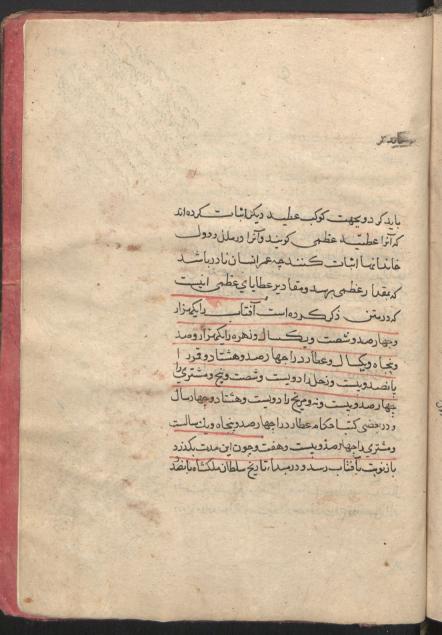 باید کرد و بجهت کوکب عطیهٔ دیکر اثبات کرده‌اند
که آنرا عطیهٔ عظمی کویند و آنرا در ملل و دول
خاندانها اثبات کنند چه عمر انسان نادر باشد
که بمقدار عظمی برسد و مقادیر عطایای عظمی اینست
که در متن ذکر کرده است آفتاب را یکهزار
و چهار صد و شصت و یکسال و زهره را یکهزار و صد
و پنجاه و یکسال و عطارد را چهار صد و هشتاد و قمر را
پانصد و بیست و زحل را دویست و شصت و پنج و مشتری را
چهار صد و بیست و نه و مریخ را دویست و هشتاد و چهار سال
و در بعضی کتب احکام عطارد را چهار صد و پنجاه و سالست
و مشتری را چهار صد و بیست و هفت و چون این مدت بکذرد
باز نوبت بآفتاب رسد و در مبداء تاریخ سلطان ملکشاه پانصد